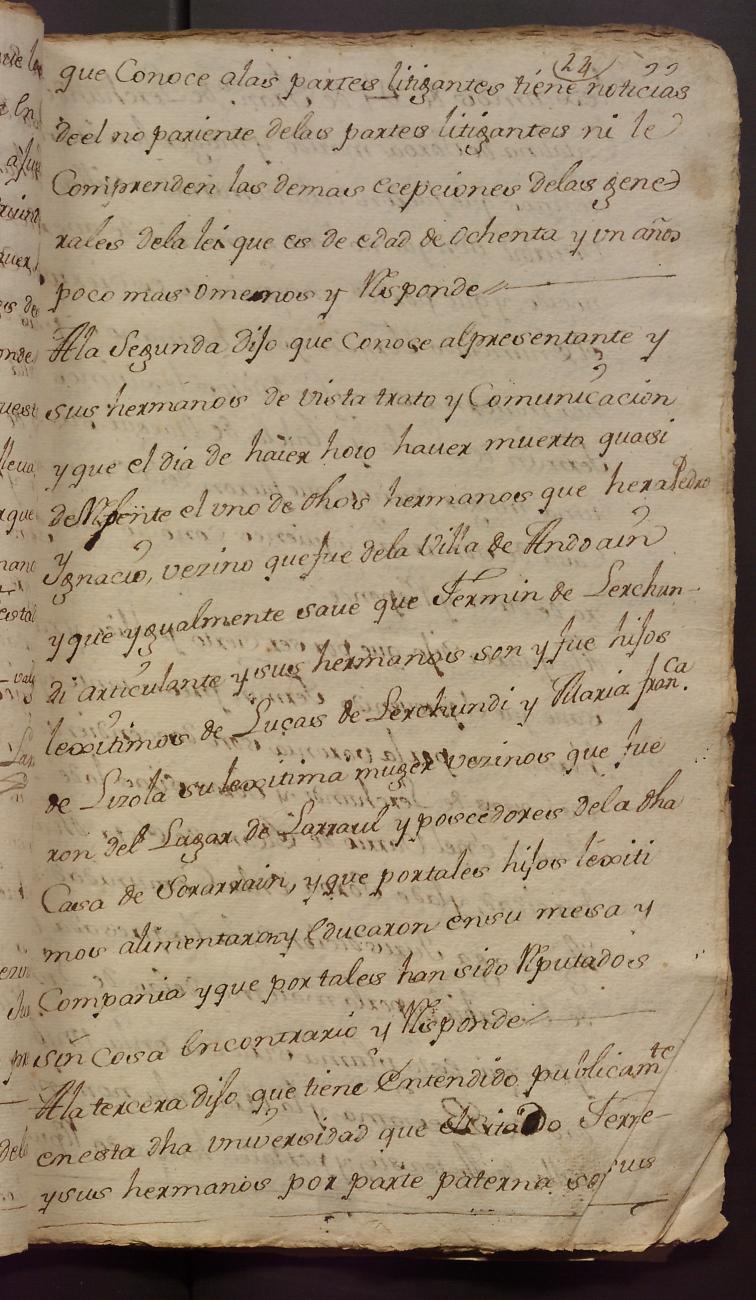 24
que Conoce alas partes litigantes tiene noticias
deel no pariente delas partes litigantes ni le
Comprenden las demas ecepciones delas gene
rales dela lei que es de edad de ochenta y un años
poco mas omenos y Responde
Ala Segunda dijo que Conoce alpresentante y
sus hermanos de vista trato y Comunicacion
y que el dia de haier hoio hauer muerto quasi
deRepente el uno de dhos hermanos que hera Pedro
Ygnacio, vezino quefue dela Villa de Andoain
y que ygualmente saue que Fermin de Lerchun-
di articulante y sus hermanos son y fue hijos
lexitimos de Lucas de Lerchundi y Maria franca.
de Lizola su lexitima muger vezinos que fue
ron del Lugar de Larraul y poseedores dela dha
Casa de Sorarrain, y que portales hijos lexiti
mos alimentaron y Educaron ensu mesa y
Compania y que por tales han sido Reputados
sin cosa Encontrario y Responde
Ala tercera dijo que tiene Entendido publicamte
enesta dha vniversidad que el citado Ferre-
y sus hermanos por parte paterna